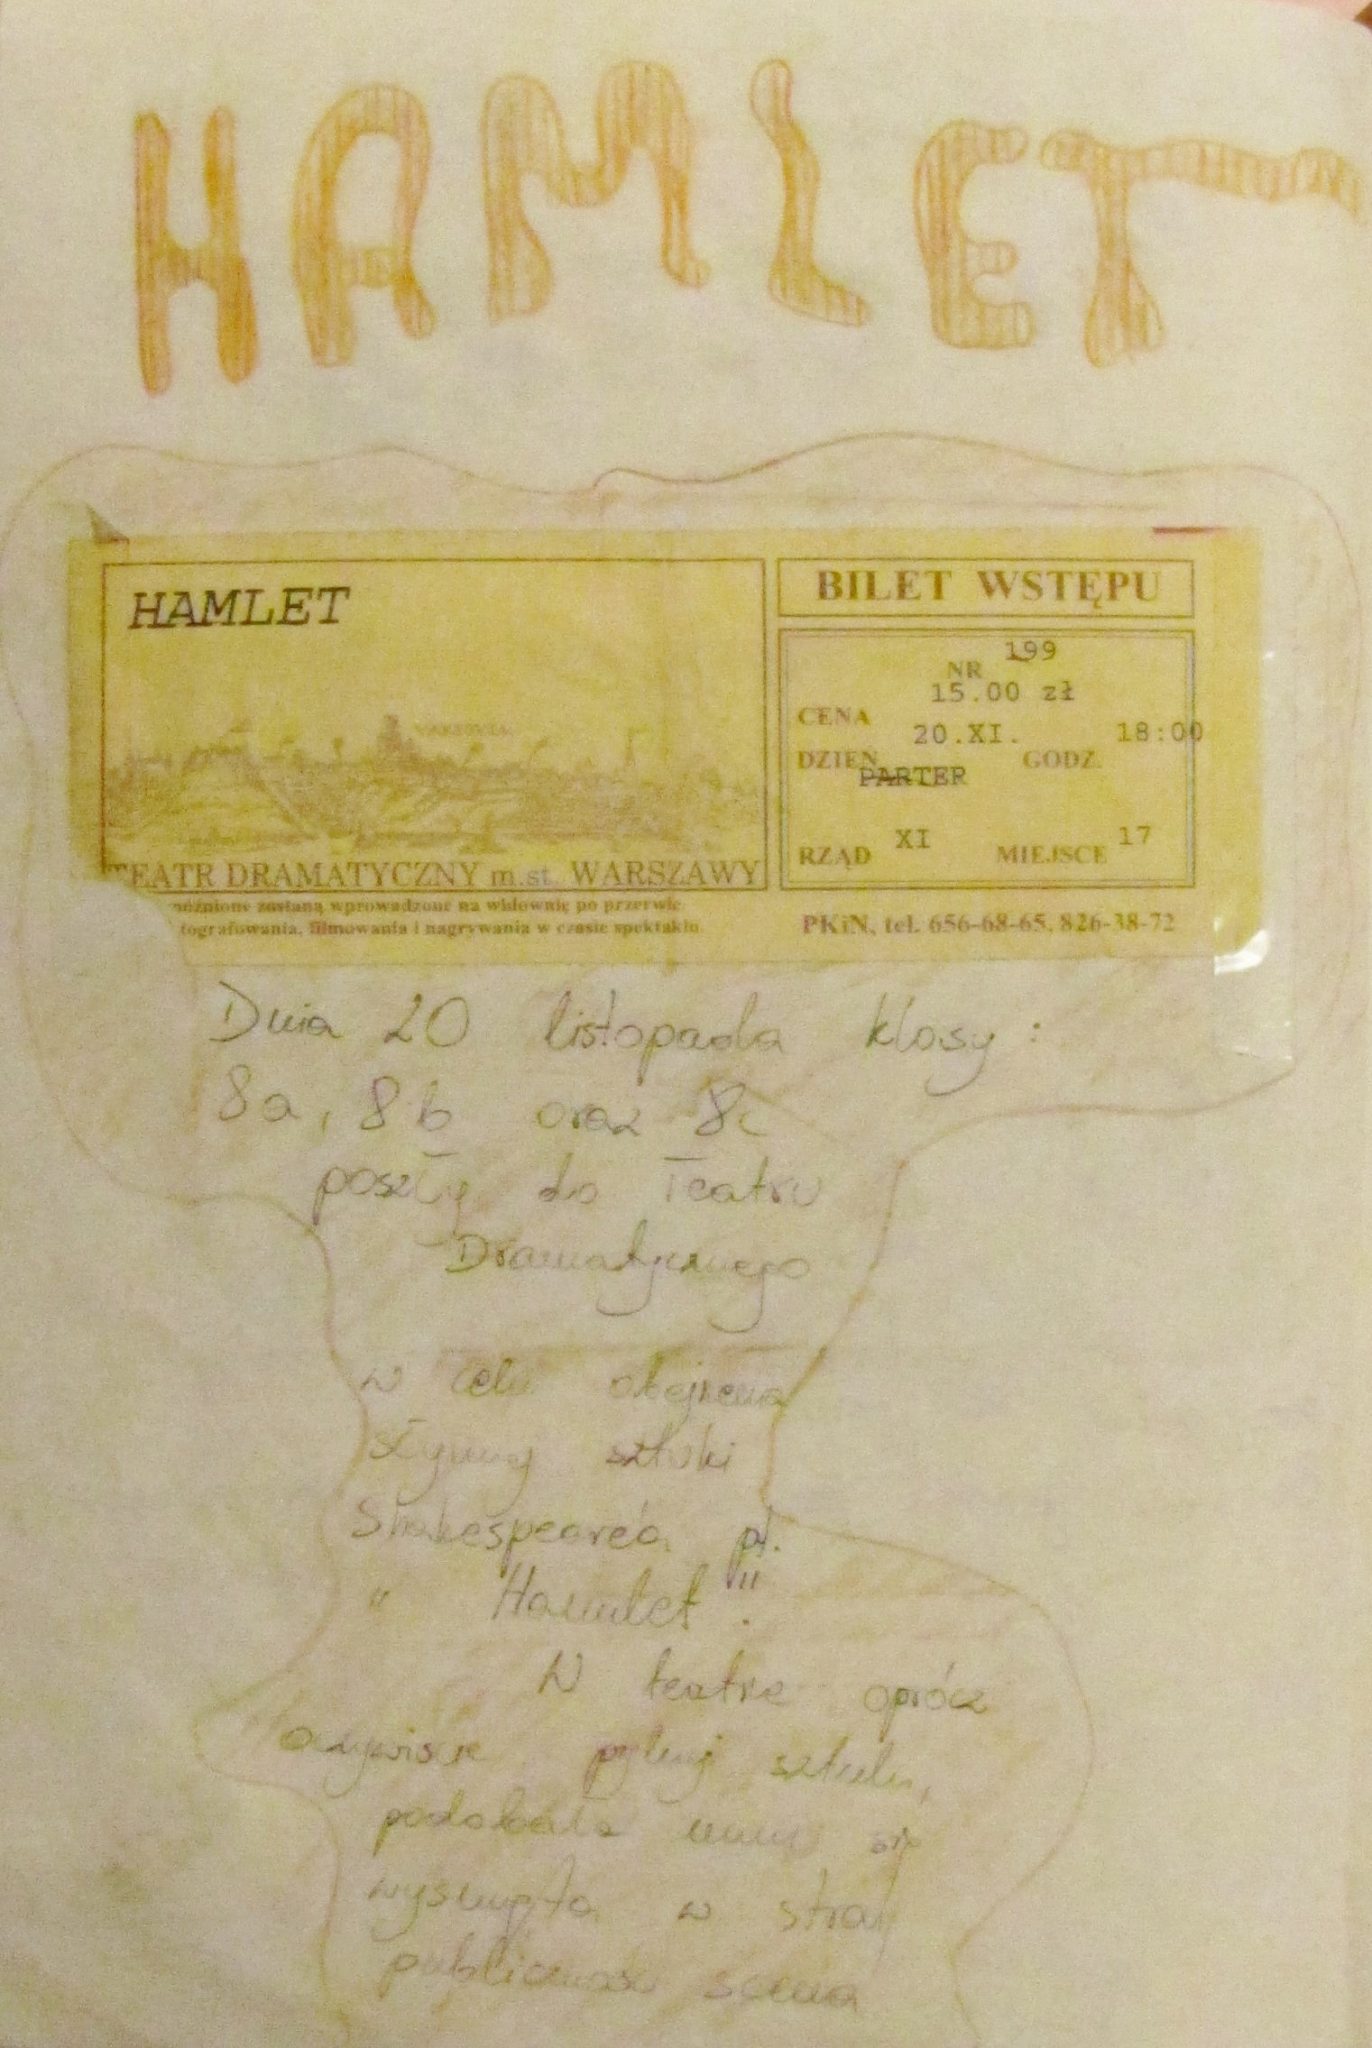 HAMLET
HAMLET
WARSZAWA
TEATR DRAMATYCZNY m.st. WARSZAWY
óźnione zostaną wprowadzone na widownię po przerwie.
tografowania, filmowania i nagrywania w czasie spektaklu.
BILET WSTĘPU
NR 199
CENA 15.00 zł
DZIEŃ 20.XI. GODZ. 18:00
PARTER
RZĄD XI MIEJSCE 17
PKiN, tel. 656-68-65, 826-38-72
Dnia 20 listopada klasy :
8a, 8b oraz 8c
poszły do Teatru
Dramatycznego
w celu obejrzenia
słynnej sztuki
Shakespeare'a pt.
" Hamlet ".
W teatrze oprócz
oczywiście sztuki,
podobała nam się
wysunięta w
publiczności scena